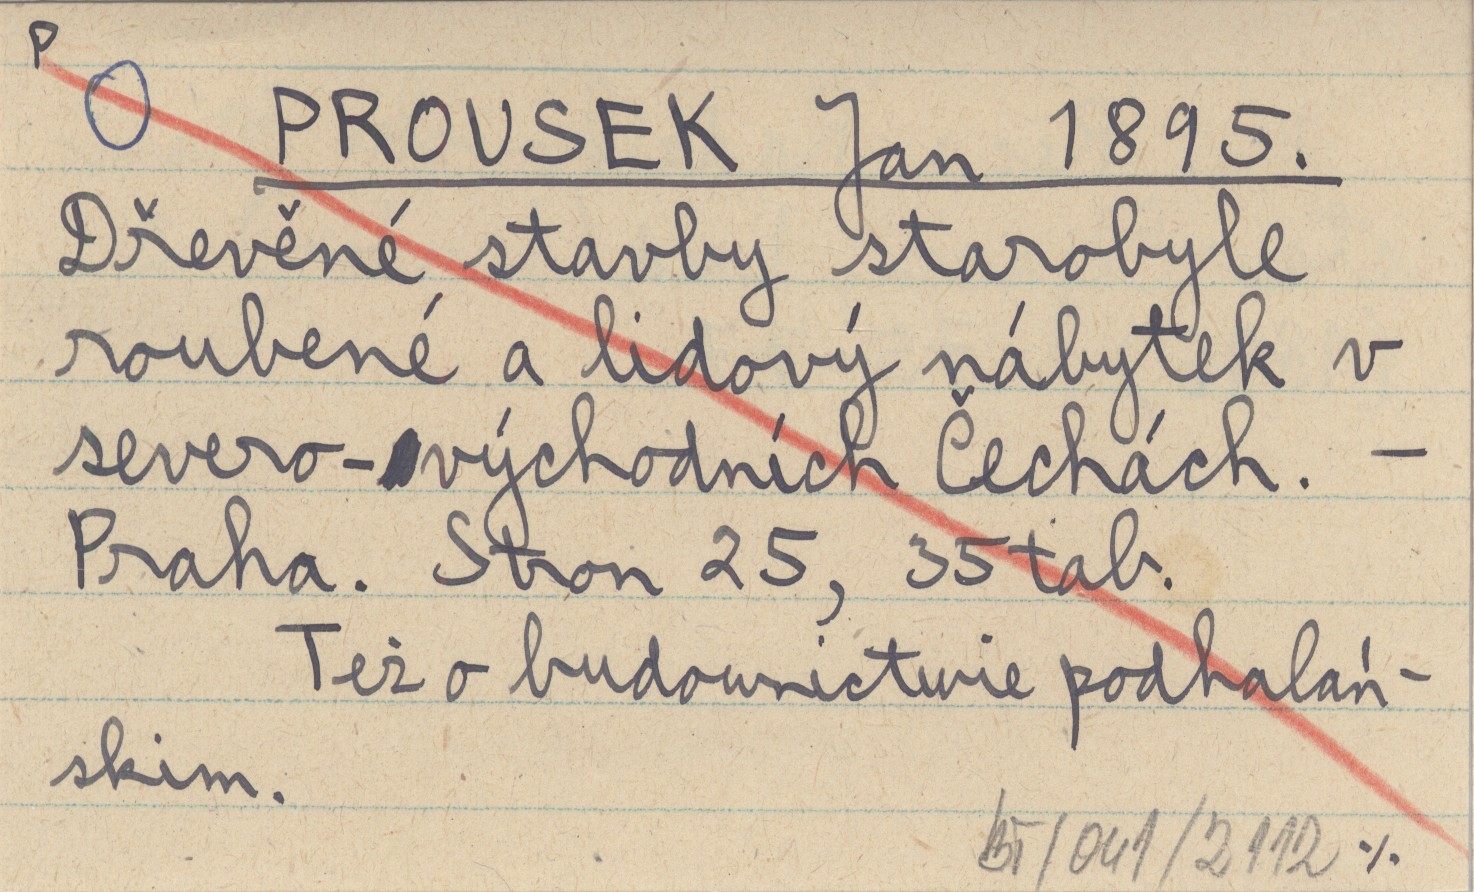 P
PROUSEK Jan 1895.
Dřevěné stavby starobyle
roubené a lidový nábytek v
severo-východních Čechách. —
Praha. Stron 25, 35 tab.
Też o budownictwie podhalań-
skim.
/041/2112 ·/.